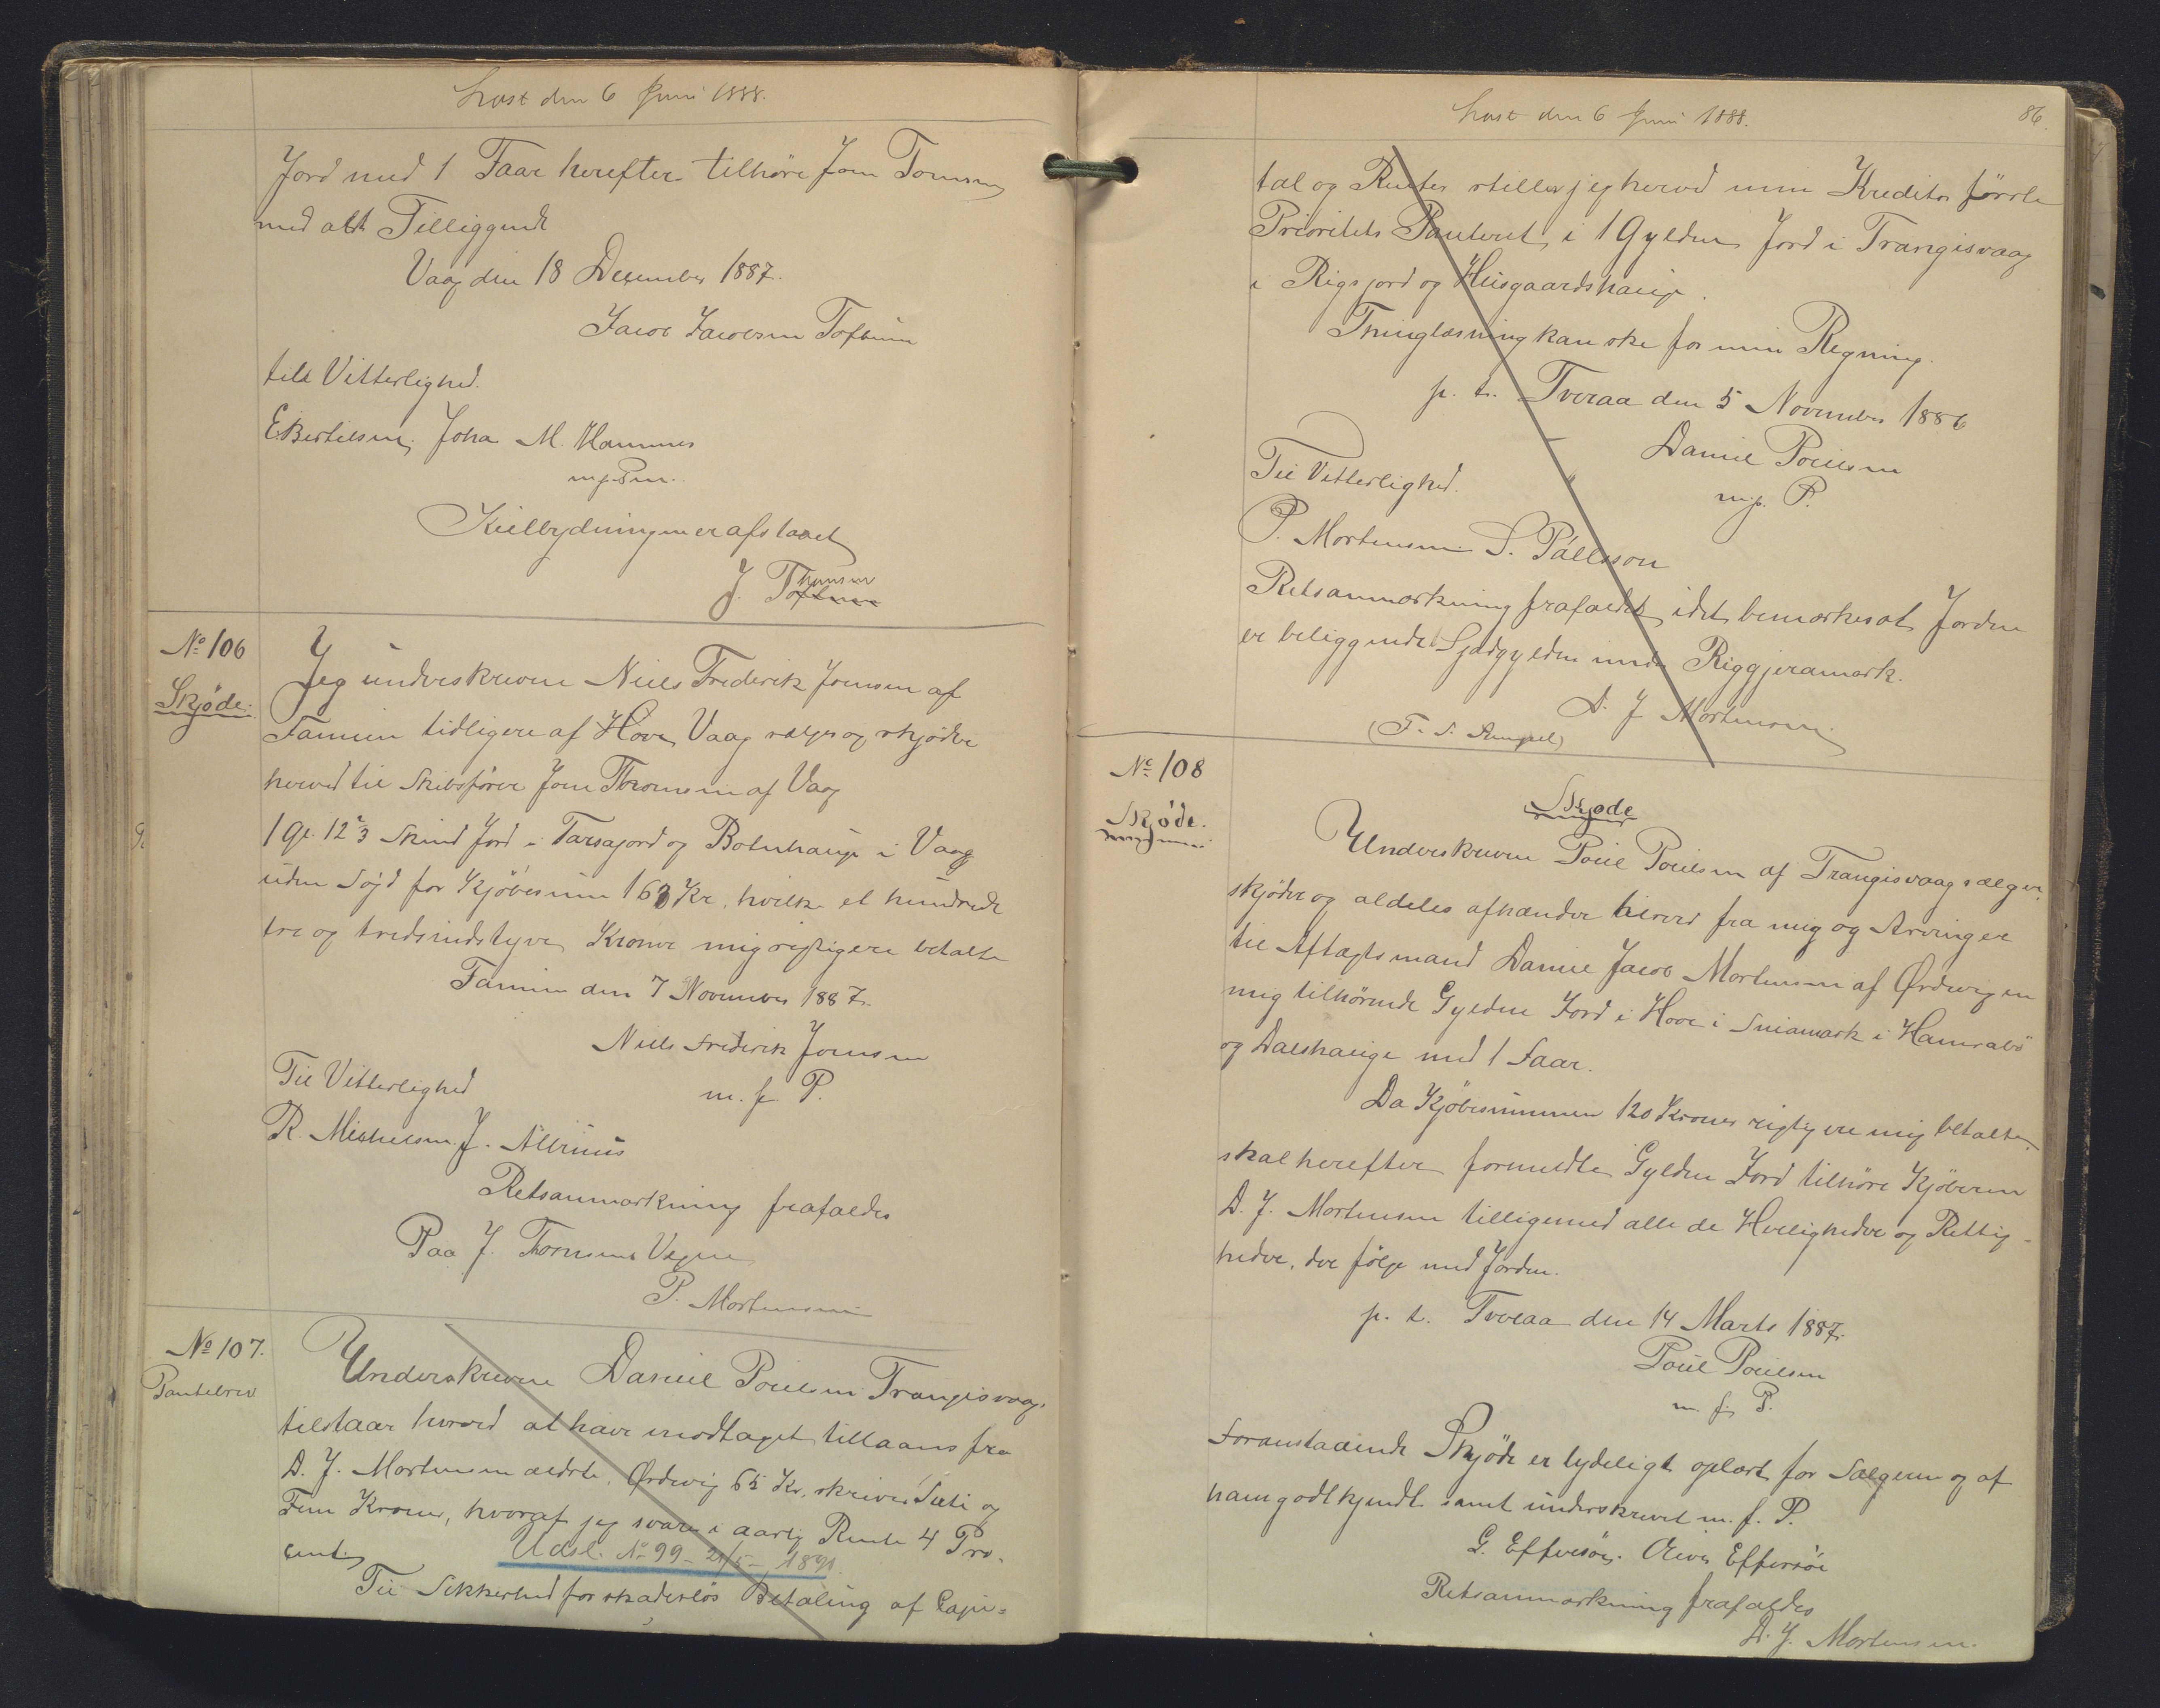 Læst den 6 Juni 1888.
Jord med 1 Faar herefter tilhøre Jon Tomsen
med alt Tilliggende
Vaag den 18 December 1887.
Jacob Jacobsen Toftum
till Vitterlighed.
E Bertelsen, Joha M. Hammer
m. f. Pen.
Kielbydningen er afstaaet
J. Thomsen
Nº 106
Skjøde.
Jeg underskrevne Niels Frederik Joensen af
Famien tidligere af Hove Vaag sælger og skjøder
herved til Skibsfører Jon Thomsen af Vaag
1 Gl. 12 2/3 Skind Jord i Tarsajord og Botnhauge i Vaag
uden Søjd for Kjøbesum 163 Kr. hvilke et hundrede
tre og tredsindstyve Kroner mig rigtig ere betalte
Famien den 7 November 1887.
Niels Frederik Joensen
m. f. P.
Til Vitterlighed
R. Michelsen. J. Albinus
Retsanmærkning frafaldes
Paa J. Thomsens Vegne
P. Mortensen
Nº 107.
Pantebrev
Underskrevne Daniel Poulsen Trangisvaag,
tilstaar herved at have modtaget tillaans fra
D. J. Mortensen ældste, Ørdevig 65 Kr. skriver Seti og
Fem Kroner, hvoraf jeg svarer i aarlig Rente 4 Pro-
cent.
Udsl. Nº 99 - 21/5 - 1891.
Til Sikkerhed for skadesløs Betaling af Capi-
Læst den 6 Juni 1888.
86.
tal og Renter stiller jeg herved min Kreditor første
Prioritets Panteret i 1 Gylden Jord i Trangisvaag
i Rigsjord og Husgaardshauge.
Thinglæsning kan ske for min Regning.
p. t. Tveraa den 5 November 1886
Daniel Poulsen
m. p. P.
Til Vitterlighed.
P. Mortensen S. Pállsson
Retsanmærkning frafaldes, idet bemærkes at Jorden
er beliggende i Sjadgylden under Riggjeramark.
D. J. Mortensen.
(T. S. Stempel)
Nº 108
Skjøde.
Skjøde
Underskrevne Poul Poulsen af Trangisvaag sælger,
skjøder og aldeles afhænder herved fra mig og Arvinger
til Aftagtsmand Daniel Jacob Mortensen af Ørdevig en
mig tilhørende Gylden Jord i Hove i Sniamark i Hamrabø
og Dalshauge med 1 Faar.
Da Kjøbesummen 120 Kroner rigtig ere mig betalte,
skal herefter formeldte Gylden Jord tilhøre Kjøberen
D. J. Mortensen tilligemed alle de Herligheder og Rettig-
heder, der følge med Jorden.
p. t. Tveraa den 14 Marts 1887.
Poul Poulsen
m. f. P.
Foranstaaende Skjøde er lydeligt oplæst for Sælgeren og af
ham godtkjendt samt underskrevet m. f. P.
G. Effersøe. Oliver Effersøe
Retsanmærkning frafaldes
D. J. Mortensen.